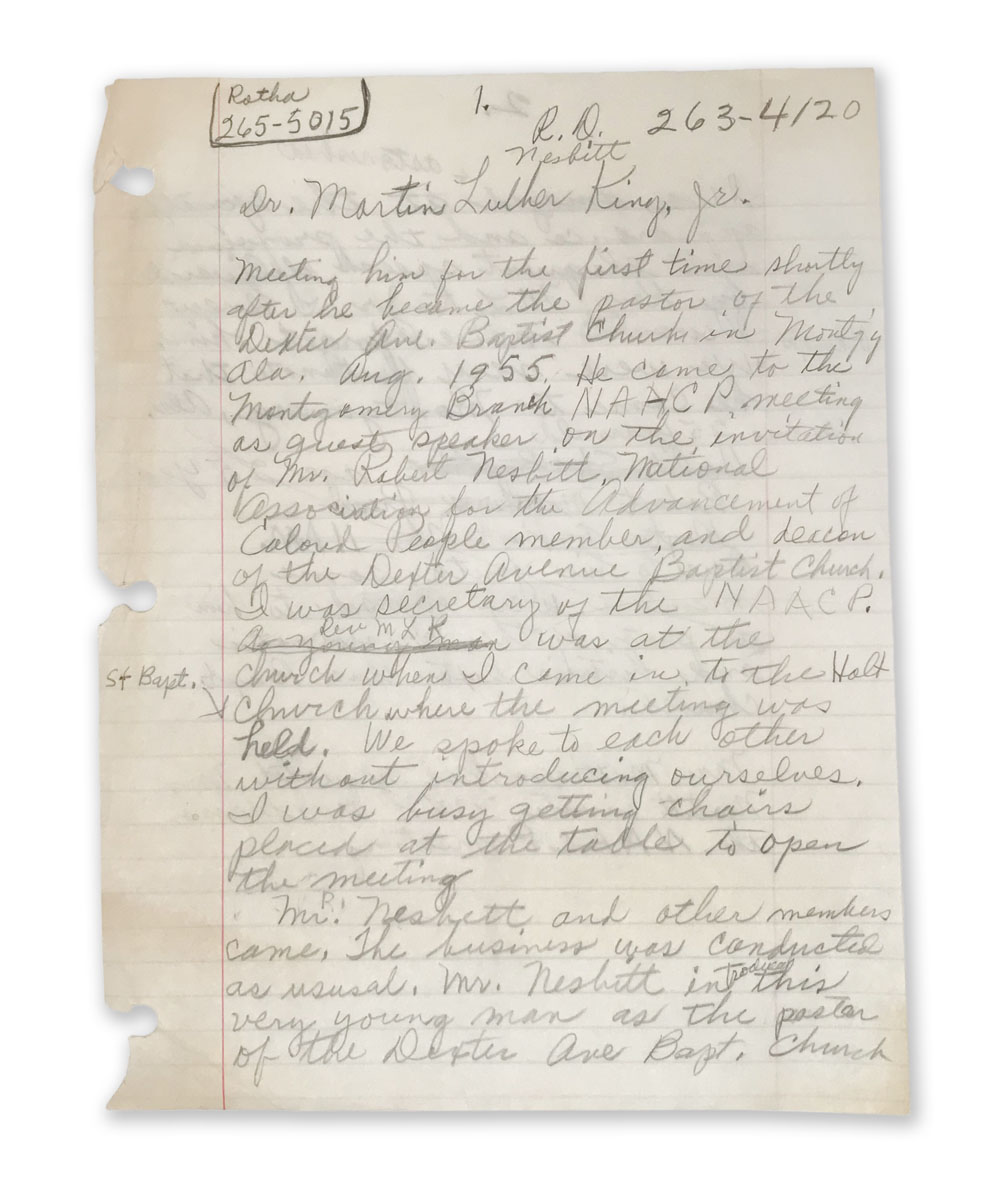 Rotha
265-5015
1.
R. D. 263-4120
Nesbitt
Dr. Martin Luther King, Jr.
Meeting him for the first time shortly
after he became the pastor of the
Dexter Ave. Baptist Church in Montg'y
Ala. Aug. 1955. He came to the
Montgomery Branch NAACP meeting
as guest speaker on the invitation
of Mr. Robert Nesbitt, National
Association for the Advancement of
Colored People member, and deacon
of the Dexter Avenue Baptist Church.
I was secretary of the NAACP.
Rev M L K
A young man was at the
church when I came in to the Holt
St Bapt.
Church where the meeting was
held. We spoke to each other
without introducing ourselves.
I was busy getting chairs
placed at the table to open
the meeting
Mr. Nesbett and other members
came. The business was conducted
as ususal. Mr. Nesbitt introduced this
very young man as the pastor
of the Dexter Ave Bapt. Church